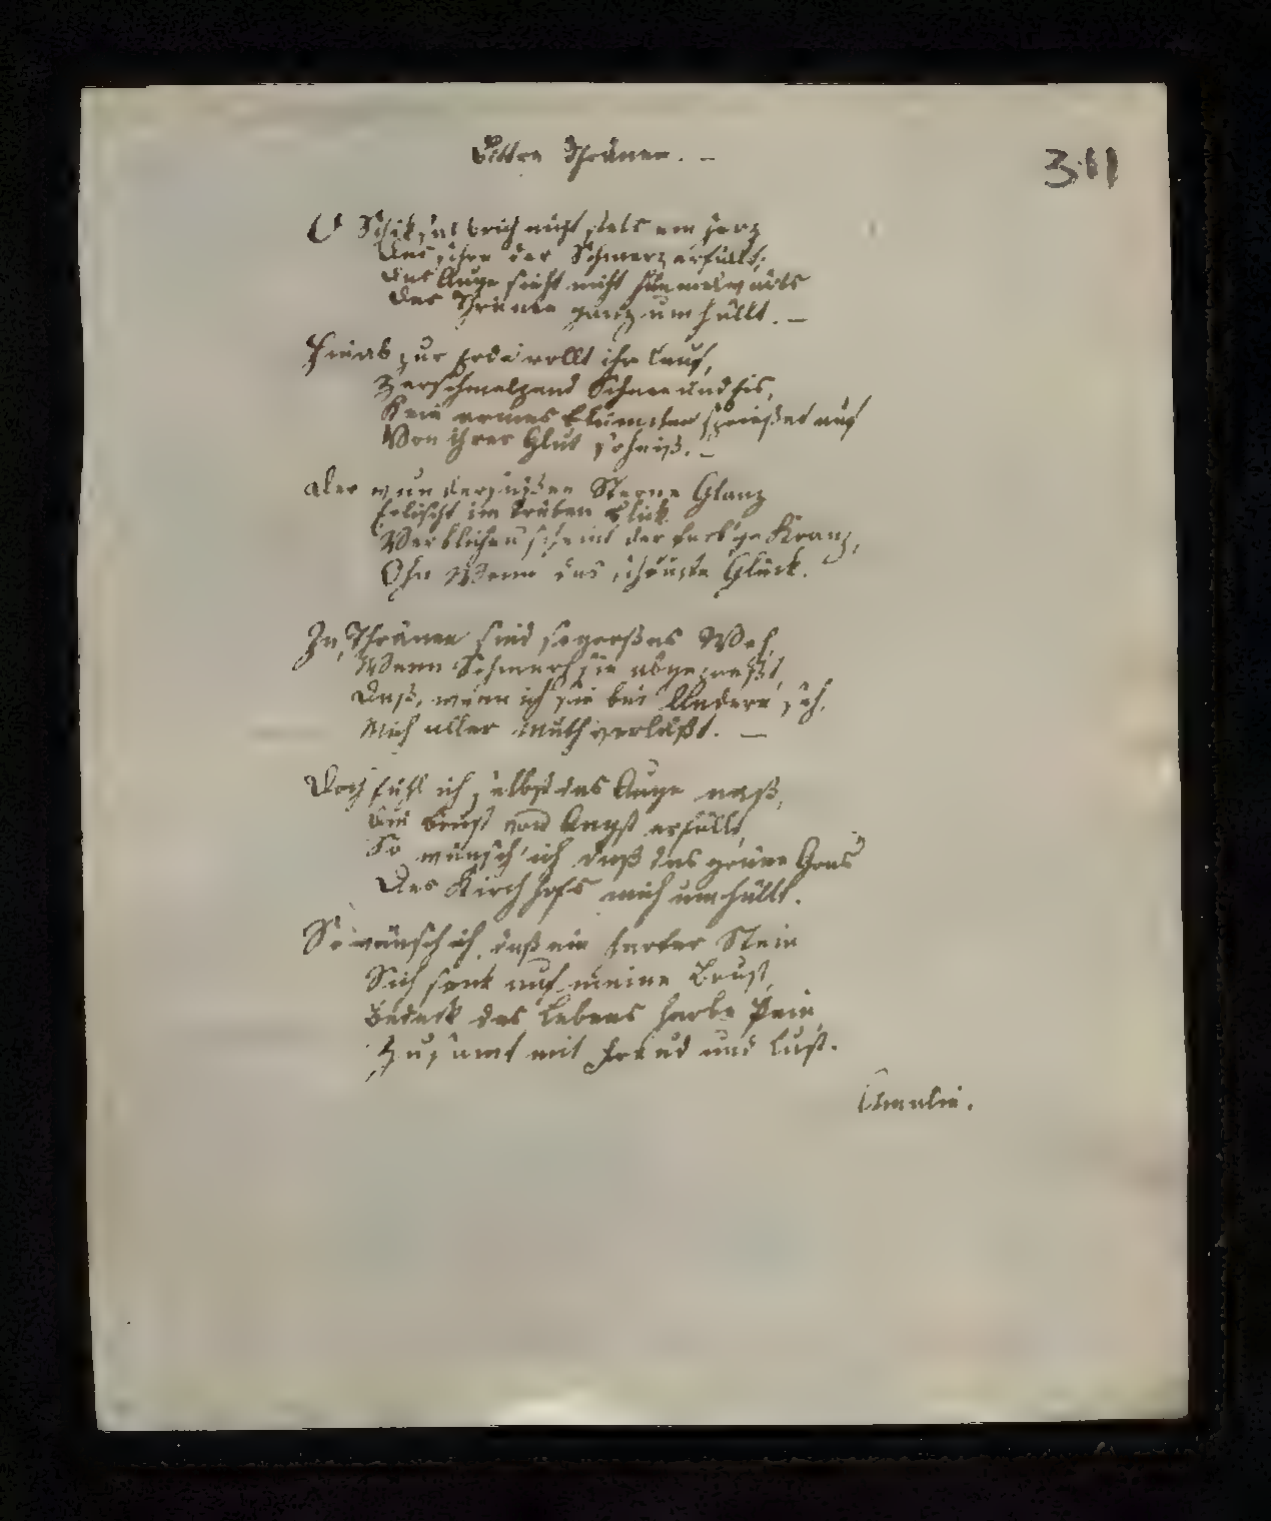 Bittre Thränen. –
311
O Schiksal brich nicht stets ein Herz
Das schon der Schmerz erfüllt;
Das Auge sieht nicht himmelwärts
Das Thränen ganz umhüllt. –
Hinab zur Erde rollt ihr Lauf,
Zerschmelzend Schnee und Eis,
Kein armes Blümchen sprießet auf
Von ihrer Glut so heiß. –
Der wundersüßen Sterne Glanz
Erlischt im trüben Blick.
Verblichen scheint der farb'ge Kranz,
Ohn Wonn das schönste Glück.
In Thränen sind so großes Weh,
Wenn Schmerz sie abgepreßt,
Daß, wenn ich sie bei Andern seh,
Mich aller Muth verläßt. –
Doch fühl ich selbst das Auge naß,
Die Brust von Angst erfüllt,
So wünsch' ich daß das grüne Gras
Des Kirchhofs mich umhüllt.
So wünsch ich, daß ein harter Stein
Sich senk auf meine Brust,
Bedeck des Lebens harbe Pein,
Zusamt mit Freud und Lust.
Amalie.